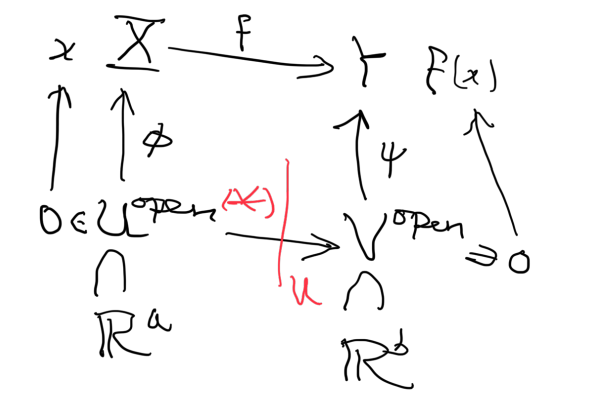 x X f Y f(x)
φ ψ
0 ∈ U open (*) V open ∋ 0
u
∩ ∩
ℝ^a ℝ^b